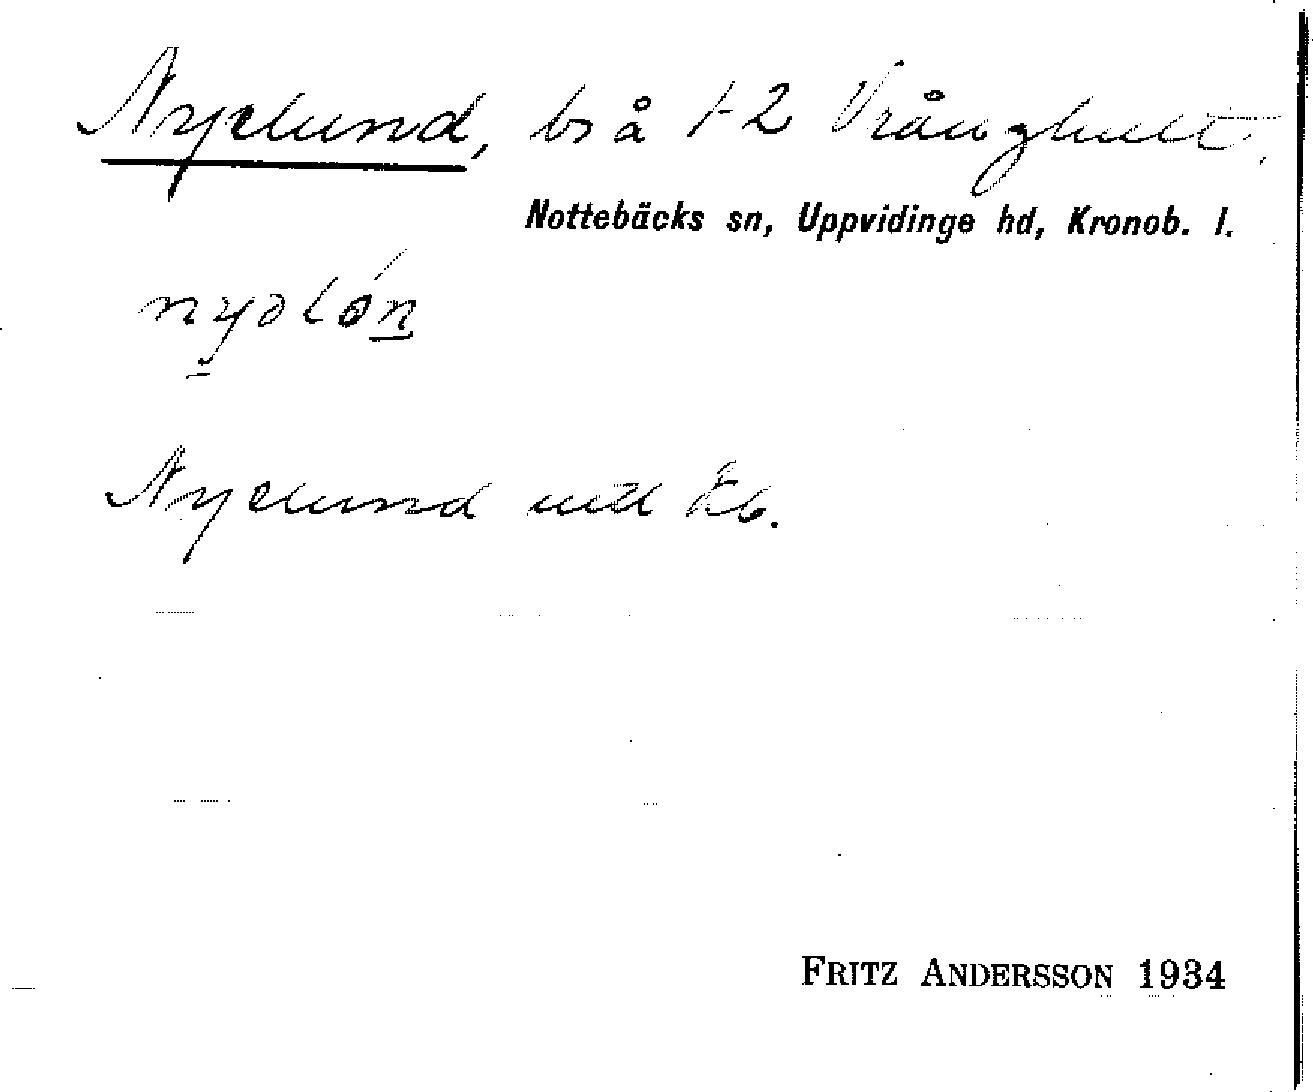 Nyelund, bs å 1-2 Vrånghult.
Nottebäcks sn, Uppvidinge hd, Kronob. l.
Nyelund
FRITZ ANDERSSON 1934